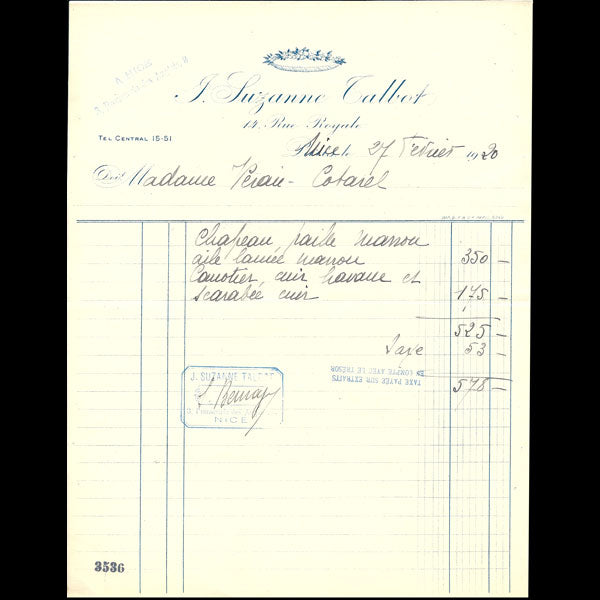 A NICE
J. Suzanne Talbot
14, Rue Royale
TEL CENTRAL 15-51
Nice le 27 Fevrier 1920
Doit Madame Cotarel
Chapeau paille marron
aile laniée marron 350 —
Canotier cuir havane et
scarabée cuir 175 —
525 —
Taxe 53 —
TAXE PAYÉE SUR EXTRAITS
EN COMPTE AVEC LE TRÉSOR
578 —
J. SUZANNE TALBOT
NICE
3536